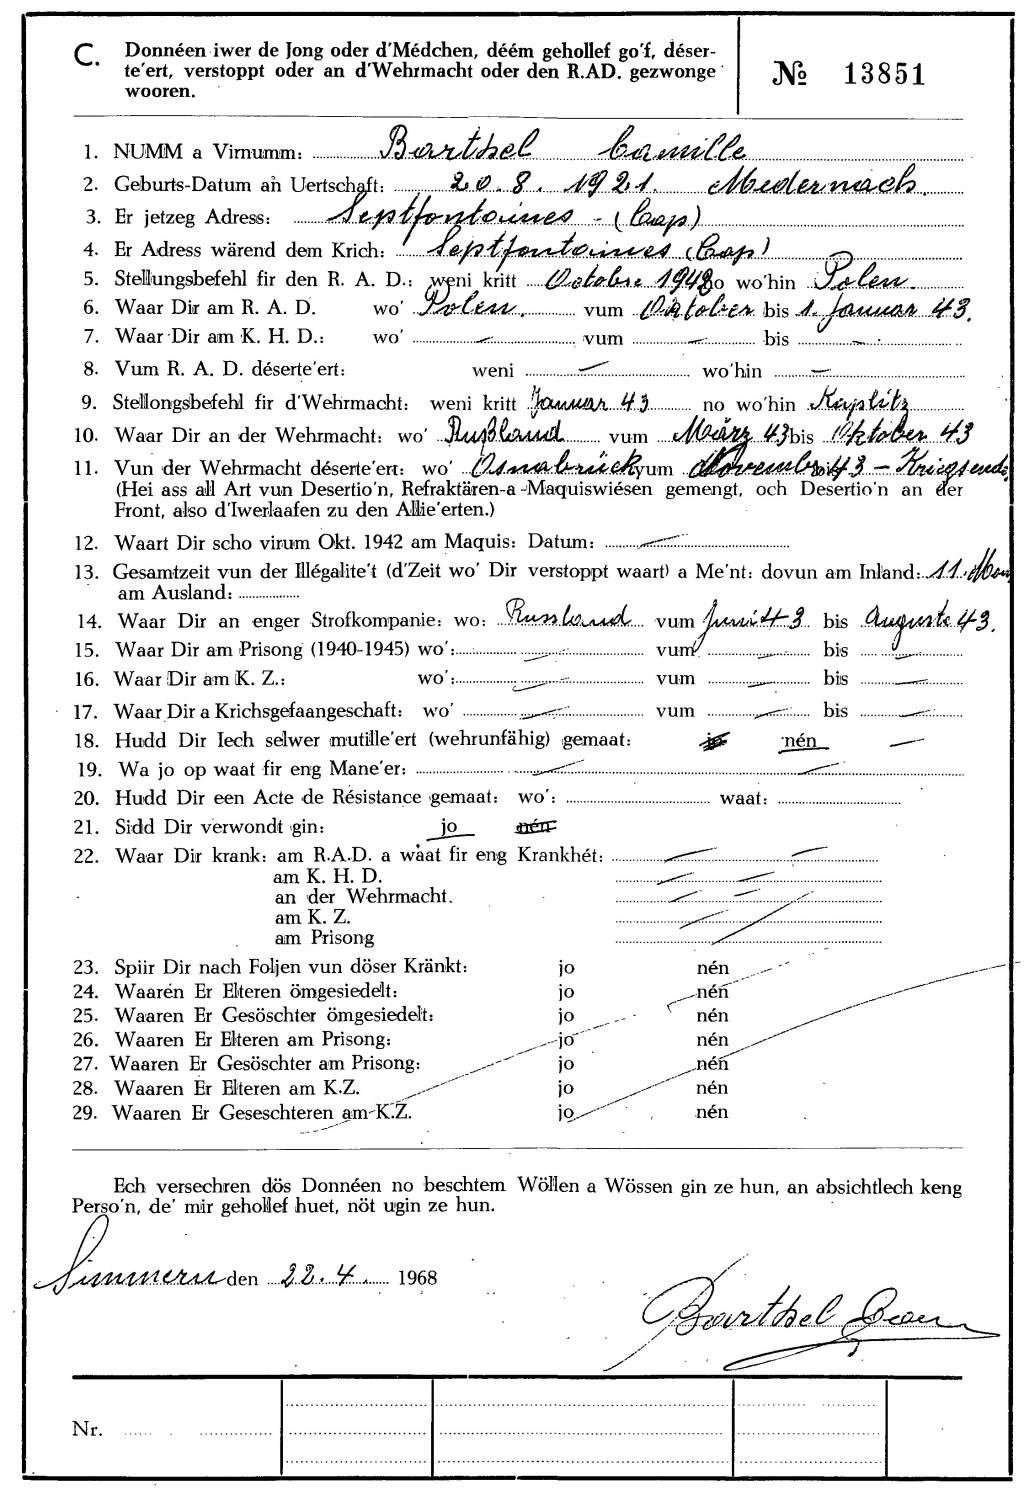 C. Donnéen iwer de Jong oder d'Médchen, déém gehollef go'f, déser-
te'ert, verstoppt oder an d'Wehrmacht oder den R.AD. gezwonge
wooren.
№ 13851
1. NUMM a Virnumm: Barthel Camille
2. Geburts-Datum an Uertschaft: 20.8.1921. Medernach.
3. Er jetzeg Adress: Septfontaines - (Cap)
4. Er Adress wärend dem Krich: Septfontaines (Cap)
5. Stellungsbefehl fir den R. A. D.: weni kritt Octobre 1942 no wo'hin Polen.
6. Waar Dir am R. A. D. wo' Polen. vum Oktober bis 1. Januar 43.
7. Waar Dir am K. H. D.: wo' — vum — bis —
8. Vum R. A. D. déserte'ert: weni — wo'hin —
9. Stellongsbefehl fir d'Wehrmacht: weni kritt Januar 43 no wo'hin Kaplitz
10. Waar Dir an der Wehrmacht: wo' Rußland vum März 43 bis Oktober 43
11. Vun der Wehrmacht déserte'ert: wo' Osnabrück vum November 43 - Kriegsende
(Hei ass all Art vun Desertio'n, Refraktären-a -Maquiswiésen gemengt, och Desertio'n an der
Front, also d'Iwerlaafen zu den Allie'erten.)
12. Waart Dir scho virum Okt. 1942 am Maquis: Datum: —
13. Gesamtzeit vun der Illégalite't (d'Zeit wo' Dir verstoppt waart) a Me'nt: dovun am Inland: 11.
am Ausland:
14. Waar Dir an enger Strofkompanie: wo: Russland vum Juni 43 bis Auguste 43.
15. Waar Dir am Prisong (1940-1945) wo': — vum — bis —
16. Waar Dir am K. Z.: wo': — vum — bis —
17. Waar Dir a Krichsgefaangeschaft: wo' — vum — bis —
18. Hudd Dir Iech selwer mutille'ert (wehrunfähig) gemaat: jo nén —
19. Wa jo op waat fir eng Mane'er: — —
20. Hudd Dir een Acte de Résistance gemaat: wo': waat:
21. Sidd Dir verwondt gin: jo nén
22. Waar Dir krank: am R.A.D. a waat fir eng Krankhét: — —
am K. H. D. — —
an der Wehrmacht. — —
am K. Z.
am Prisong
23. Spiir Dir nach Foljen vun döser Kränkt: jo nén
24. Waaren Er Elteren ömgesiedelt: jo nén
25. Waaren Er Gesöschter ömgesiedelt: jo nén
26. Waaren Er Elteren am Prisong: jo nén
27. Waaren Er Gesöschter am Prisong: jo nén
28. Waaren Er Elteren am K.Z. jo nén
29. Waaren Er Geseschteren am K.Z. jo nén
Ech versechren dös Donnéen no beschtem Wöllen a Wössen gin ze hun, an absichtlech keng
Perso'n, de' mir gehollef huet, nöt ugin ze hun.
Simmern den 22.4. 1968
Barthel
Nr.